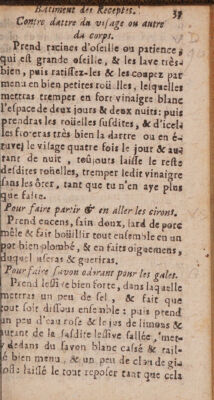 Batiment des Receptes. 37
Contre dattre du visage ou autre
du corps.
Prend racines d'oseille ou patience,
qui est grande oseille, & les lave tres-
bien, puis ratissez-les & les coupez par
menu en bien petites roüelles, lesquelles
mettras tremper en fort vinaigre blanc
l'espace de deux jours & deux nuits: puis
prendras les roüelles susdites, & d'icelles
les froteras tres bien la dartre ou en é-
tuvez le visage quatre fois le jour & au-
tant de nuit, toûjours laisse le reste
desdites roñelles, tremper ledit vinaigre
sans les ôter, tant que tu n'en aye plus
que faire.
Pour faire partir & en aller les cirons.
Prend encens, sain doux, lard de porc
mêle & fait boüillir tout ensemble en un
pot bien plombé, & en faits oiguemens,
duquel useras & gueriras.
Pour faire savon odorant pour les galet.
Prend lessive bien forte, dans laquelle
mettras un peu de sel, & fait que
tout soit dissous ensemble: puis prend
un peu d'eau rose & le jus de limons &
autant de la susdite lessive sallée, met-
y dedans du savon blanc cassé & tail-
lé bien menu, & un peu de clan de gi-
rofl: laissé le tout reposer tant que cela